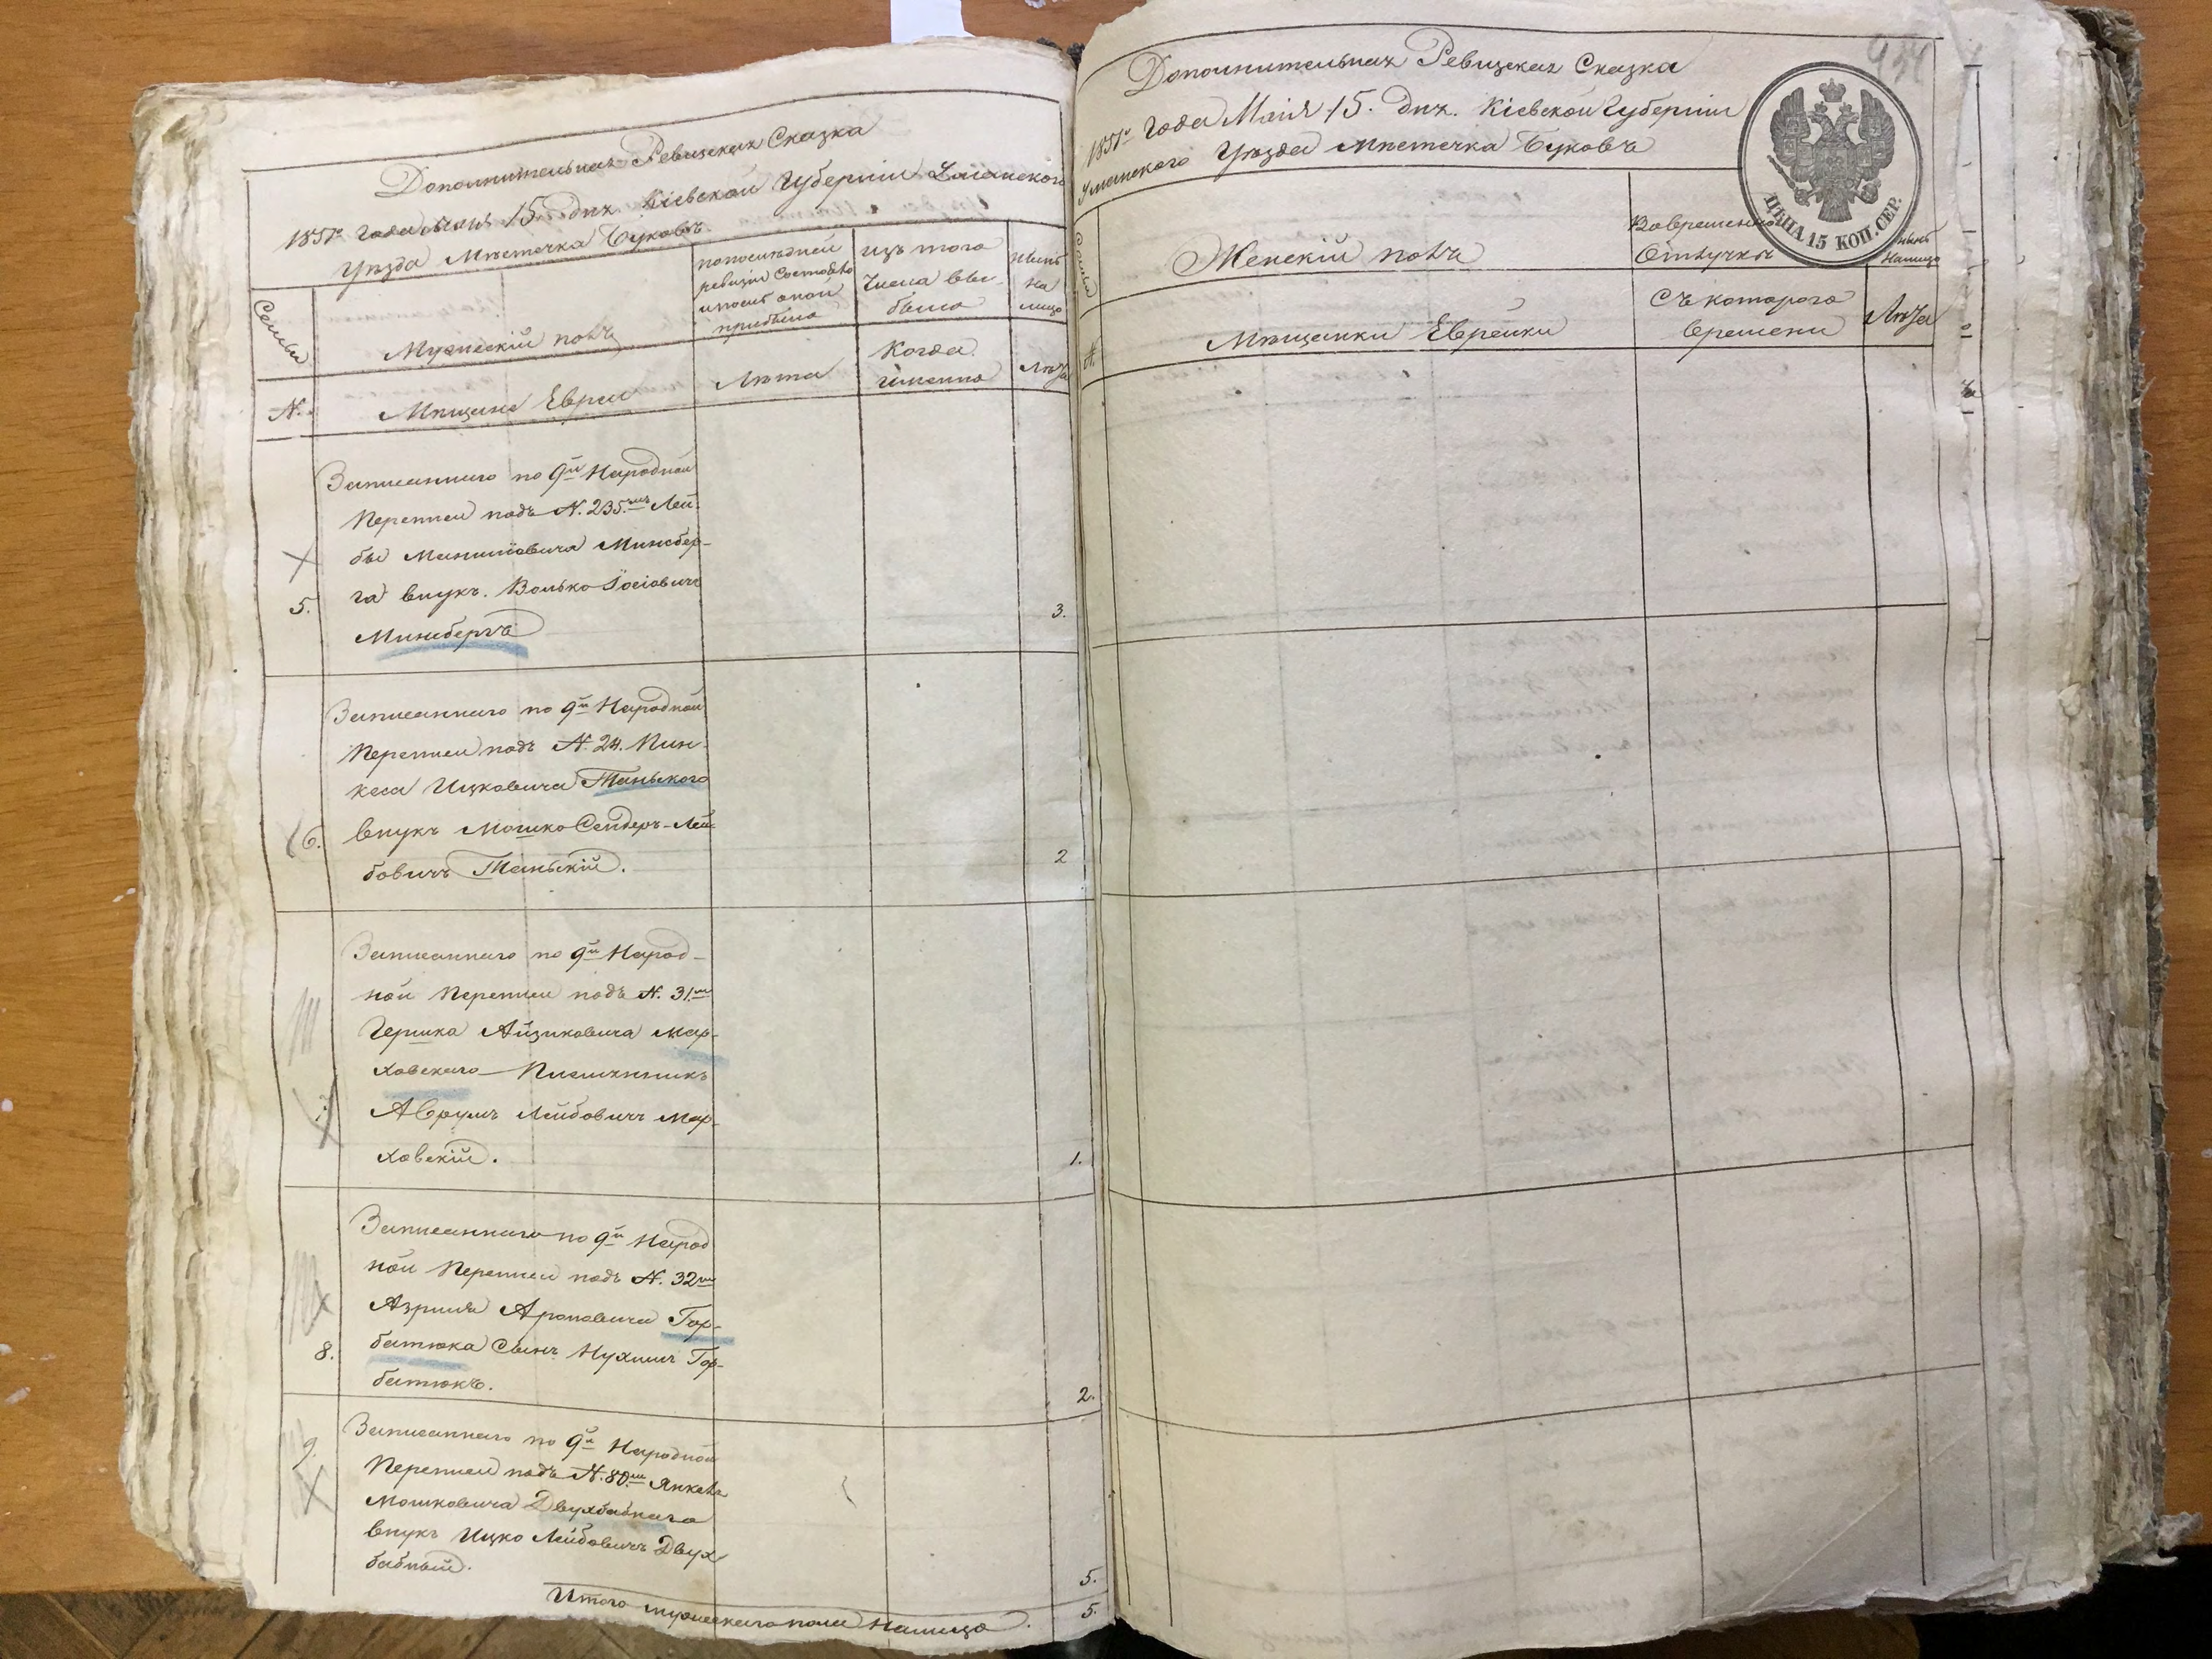 Дополнительная Ревизская Сказка
1851го года Маія 15 дня Кіевской Губерніи Уманскаго
Уѣзда Мѣстечка Буковъ
Семьи
Мужескій полъ
по последней
ревизіи состояло
и послѣ оной
прибыло
изъ того
числа вы-
было
нынѣ
на
лицо
N.
Мѣщане Евреи
Лѣта
Когда
именно
Лѣта
Записаннаго по 9й Народной
Переписи подъ N. 235мъ Лей-
бы Манишовича Минсбер-
5.
га внукъ. Волько Іосіовичъ
Минсбергъ
3.
Записаннаго по 9й Народной
Переписи подъ N. 24. Пин-
каса Ицковича Таньского
6.
внукъ Мошко Сендеръ-Лей-
бовичъ Таньскій.
2
Записаннаго по 9й Народ-
ной Переписи подъ N. 31мъ
Гершка Айзиковича Мар-
ховскаго Племянникъ
Аврумъ Лейбовичъ Мар-
ховскій.
1.
Записаннаго по 9й Народ
ной Переписи подъ N. 32мъ
Азриля Ароновича Гор-
8.
батюка Сынъ Нухимъ Гор-
батюкъ.
2.
9.
Записаннаго по 9й Народной
Переписи подъ N. 80мъ Янкеля
Мошковича Двухбабнаго
внукъ Ицко Лейбовичъ Двух
бабный.
5.
Итого мужескаго пола налицо.
5.
Дополнительная Ревизская Сказка
1851го года Маія 15. дня. Кіевской Губерніи
Уманскаго Уѣзда Мѣстечка Буковъ
ЦѢНА 15 КОП. СЕР.
Семьи
Женскій полъ
Во временной
Отлучкѣ
нынѣ
налицо
N.
Мѣщанки Еврейки
Съ котораго
времени
Лѣта